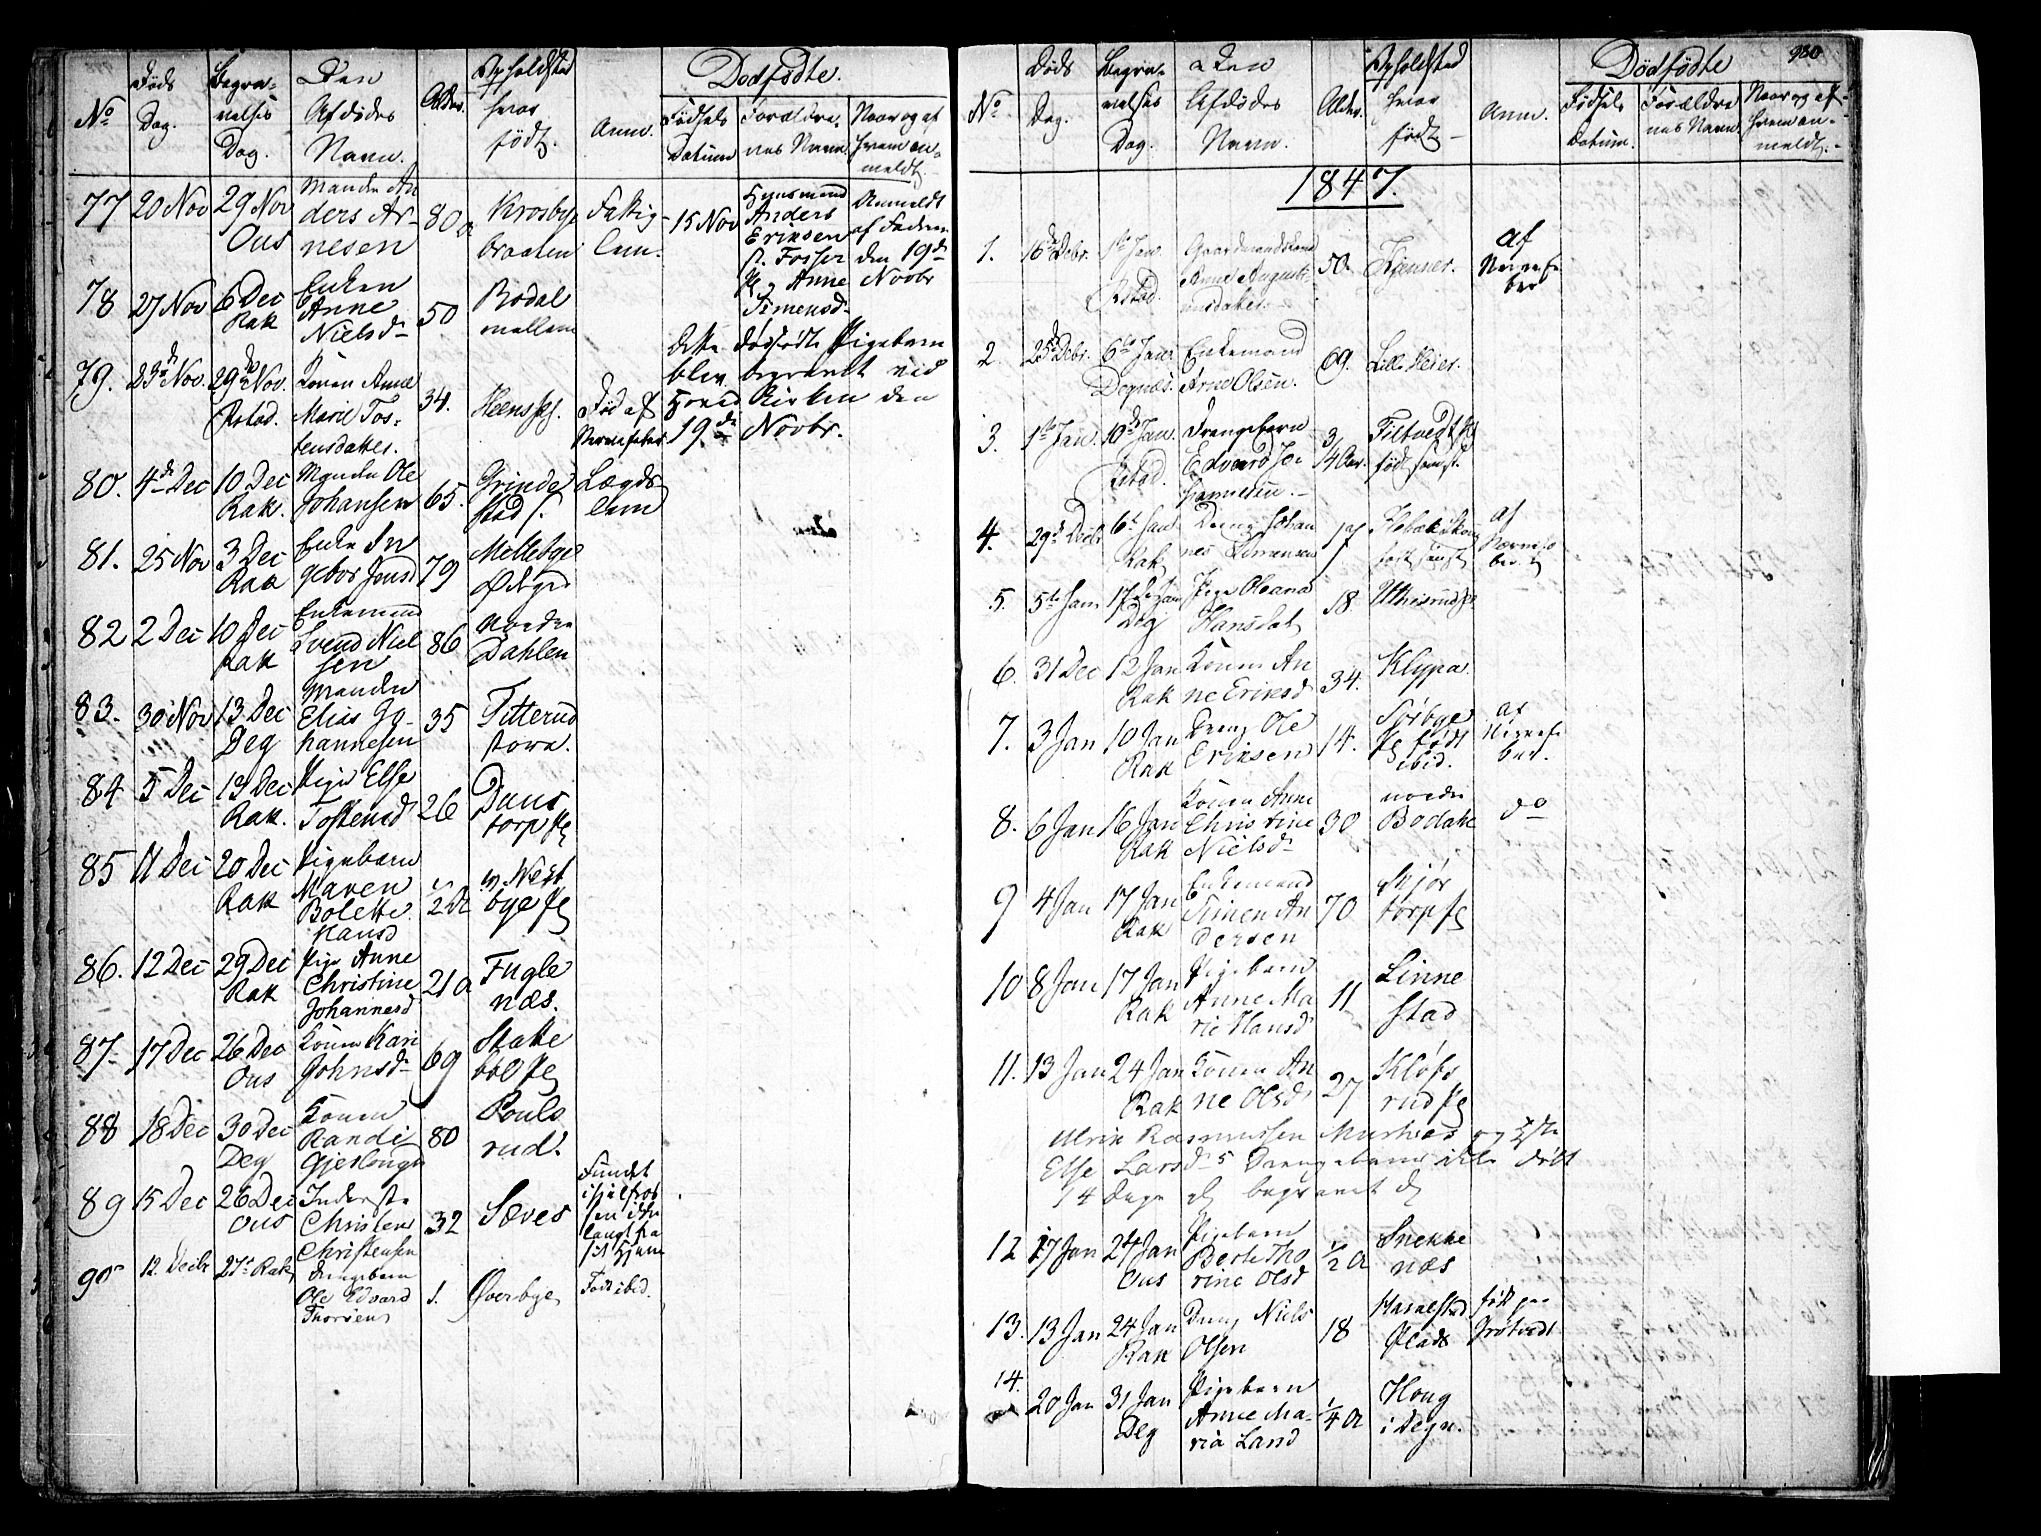 No
Døds
Dag.
Begra-
velses
Dag.
Den
Afdødes
Navn.
Alder.
Opholdsted
hvor
født.
Anm.
Dødfødte.
Fødsels
Datum
Forældre-
nes Navn.
Naar og af
hvem an-
meldt.
77 20 Nov 29 Nov
Ous
Manden An
ders Ar-
nesen
80 a
Krosbye
braaten
Fattig-
lem.
15 Nov
Huusmand
Anders
Eriksen
Anne
Simensd.
Anmeldt
af Faderen
den 19de
Novbr
78 27 Nov 6 Dec
Rak
Enken
Anne
Nielsd.
50
Bodal
mellem
Dette dødfødte Pigebarn
blev begravet ved
Kirken den
19de Novbr.
79. 23de Nov. 29de Nov.
Rstad.
Konen Anne
Marie Tos-
tensdatter.
34.
Død af
Nervefeber
80. 4de Dec 10 Dec
Rak.
Manden Ole
Johansen
65.
Grinde
stad
Lægds
lem
81. 25 Nov 3 Dec
Rak
Enke In
gebor Jensd
79
Mellebye
82 2 Dec 10 Dec
Rak
Enkemand
Svend Niel
sen
86
nordre
Dahlen
83. 30 Nov 13 Dec
Deg
Manden
Elias Jo-
hannesen
35
Titterud
store.
84 5 Dec 13 Dec
Rak.
Pige Else
Tostensd
26
torp
85 11 Dec 20 Dec
Rak
Pigebarn
Maren
Bolette
Hansd
Næst
bye
86. 12 Dec 29 Dec
Rak
Pige Anne
Christine
Johannesd
21 a
Fugle
næs.
87 17 Dec 26 Dec
Ous
Konen Kari
Johnsd
69
88 18 Dec 30 Dec
Deg
Konen
Randi
80
Pouls
rud.
89 15 Dec 26 Dec
Ous
Inderste
Christen
Christensen
32
Sæves
Fundet
ihjelfros
sen ikke
langt fra
sit Hjem
90 12. Decbr 27de Rak
Drengebarn
Ole Edvard
Thorsen
1.
Øverbye
Født ibid.
930
No
Døds
Dag.
Begra-
velses
Dag.
Den
Afdødes
Navn.
Alder.
Opholdsted
hvor
født
Anm.
Dødfødte
Fødsels
Datum.
Forældre
nes Navn.
Naar og af
hvem an-
meldt.
1847.
1. 16de Debr. 1ste Jan.
Rstad.
Gaardmandskone
Anne Augusti
nusdatter.
50
af
Nervefe
ber
2. 25de Debr. 6te Janr
Degnæs.
Enkemand
Arne Olsen.
69.
Lille Heier.
3. 1ste Jan. 10de Jan.
Rstad.
Drengebarn
Edvard Jo
hannesen.
3/4 Aar.
Filtvedt
født samst.
4. 29de Decbr 6te Janr
Rak
Dreng Johan
nes Simensen
17
født samst
af
Nervefe
ber
5. 5te Jan 17de Jan
Deg
Pige Oleana
Hansdat
18
6. 31 Dec 12 Jan
Rak
Konen An
ne Eriksd
34.
Klypa
7. 3 Jan 10 Jan
Rak
Dreng Ole
Eriksen
14.
Sørbye
født
ibid.
af
Nervefe
ber.
8. 6 Jan 16 Jan
Rak
Konen Anne
Christine
Nielsd.
30
nordre
Bodahl
do
9 4 Jan 17 Jan
Rak
Enkemand
Simen An
dersen
70
Skjør
torp
10 8 Jan 17 Jan
Rak
Pigebarn
Anne Ma
rie Hansd
11
Linne
stad
11. 13 Jan 24 Jan
Rak
Konen An
ne Olsd
27
Kløfs
rud
Ulrik Rasmussen og
Else Larsd Drengebarn død
14 Dage begravet
12 17 Jan 24 Jan
Ous
Pigebarn
Berte Tho
rine Olsd
1/2 a
Snekke
næs
13. 13 Jan 24 Jan
Rak
Dreng Niels
Olsen
18
Hasalstad
Plads
født paa
14.
20 Jan 31 Jan
Deg
Pigebarn
Anne Ma-
ria Larsd
1/4 a
Houg
i Degn.